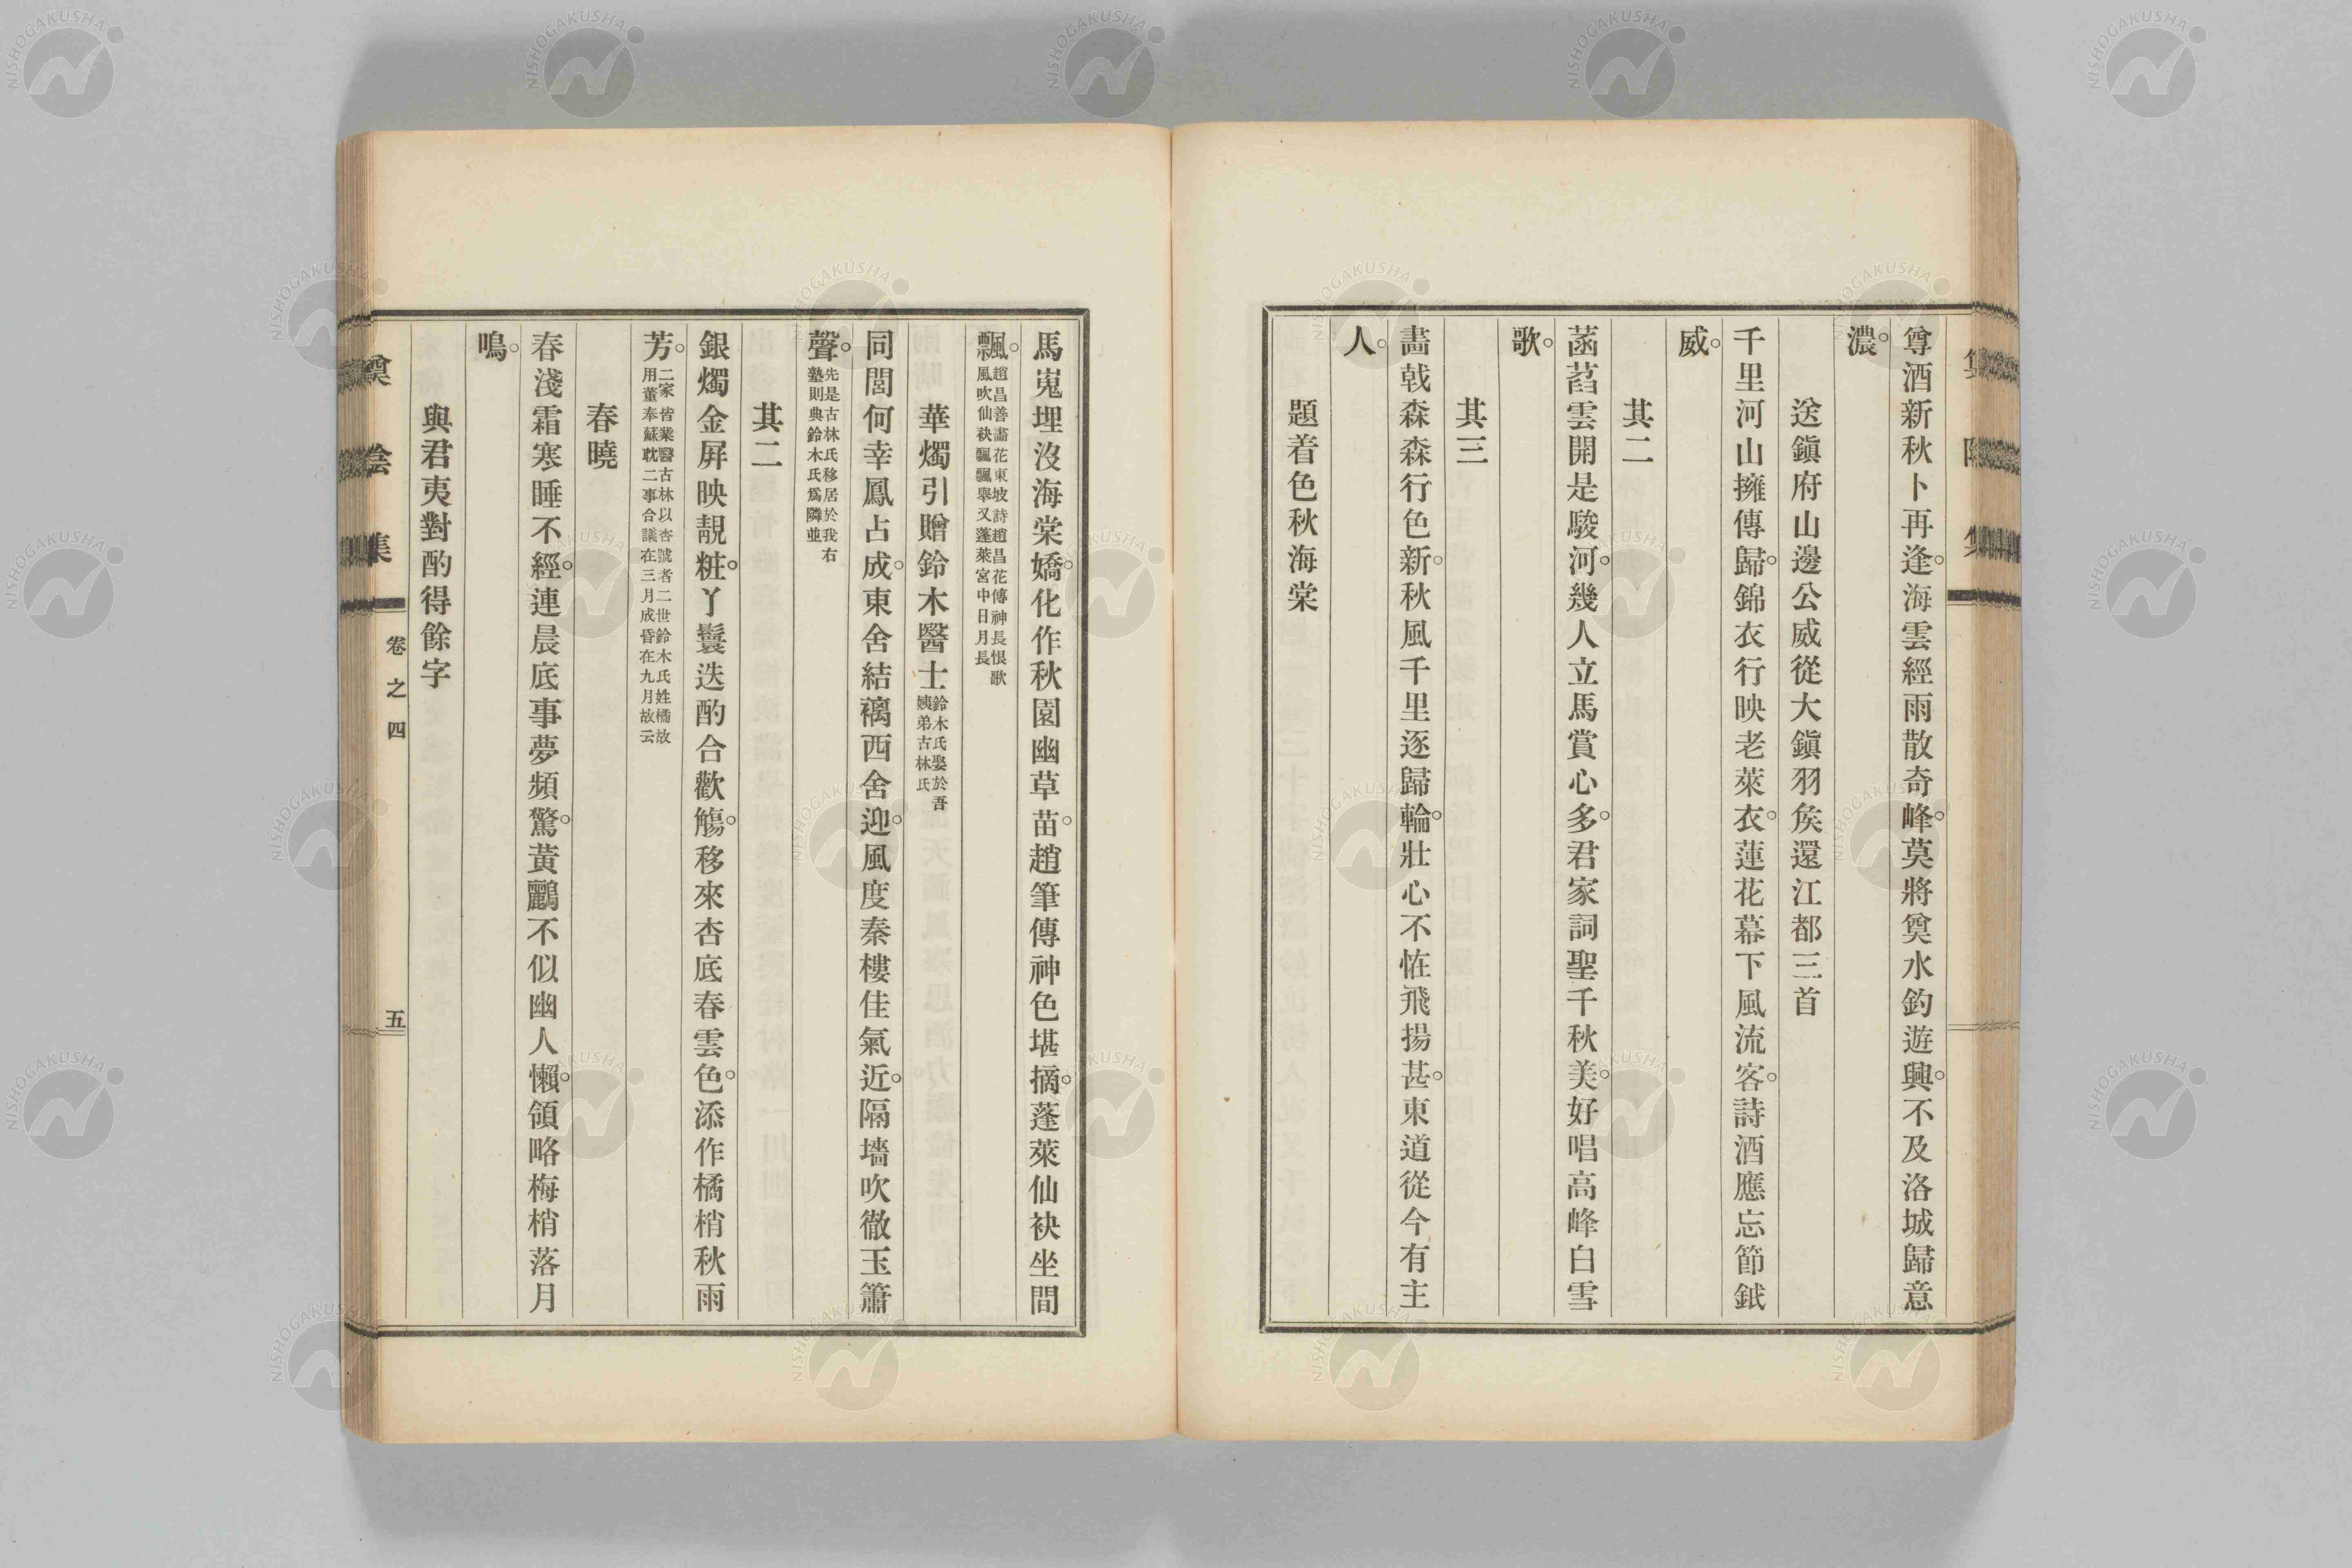 尊酒新秋卜再逢。海雲經雨散奇峰。莫將奠水釣遊興。不及洛城歸意
濃。
送鎭府山邊公威從大鎭羽矦還江都三首
千里河山擁傳歸。錦衣行映老萊衣。蓮花幕下風流客。詩酒應忘節鉞
威。
其二
菡萏雲開是駿河。幾人立馬賞心多。君家詞聖千秋美。好唱高峰白雪
歌。
其三
畵戟森森行色新。秋風千里逐歸輪。壯心不恠飛揚甚。東道從今有主
人。
題着色秋海棠
馬嵬埋沒海棠嬌。化作秋園幽草苗。趙筆傳神色堪摘。蓬萊仙袂坐間
飄。趙昌善畵花東坡詩趙昌花傳神長恨歌
風吹仙袂飄飄擧又蓬萊宮中日月長
華燭引贈鈴木醫士鈴木氏娶於吾
姨弟古林氏
同閭何幸鳳占成。東舍結褵西舍迎。風度秦樓佳氣近。隔墻吹徹玉簫
聲。先是古林氏移居於我右
塾則典鈴木氏爲隣並
其二
銀燭金屛映靚粧。丫鬟迭酌合歡觴。移來杏底春雲色。添作橘梢秋雨
芳。二家皆業醫古林以杏號者二世鈴木氏姓橘故
用董奉蘇耽二事合議在三月成昏在九月故云
春曉
春淺霜寒睡不經。連晨底事夢頻驚。黃鸝不似幽人懶。領略梅梢落月
鳴。
與君夷對酌得餘字
奠陰集 卷之四 五